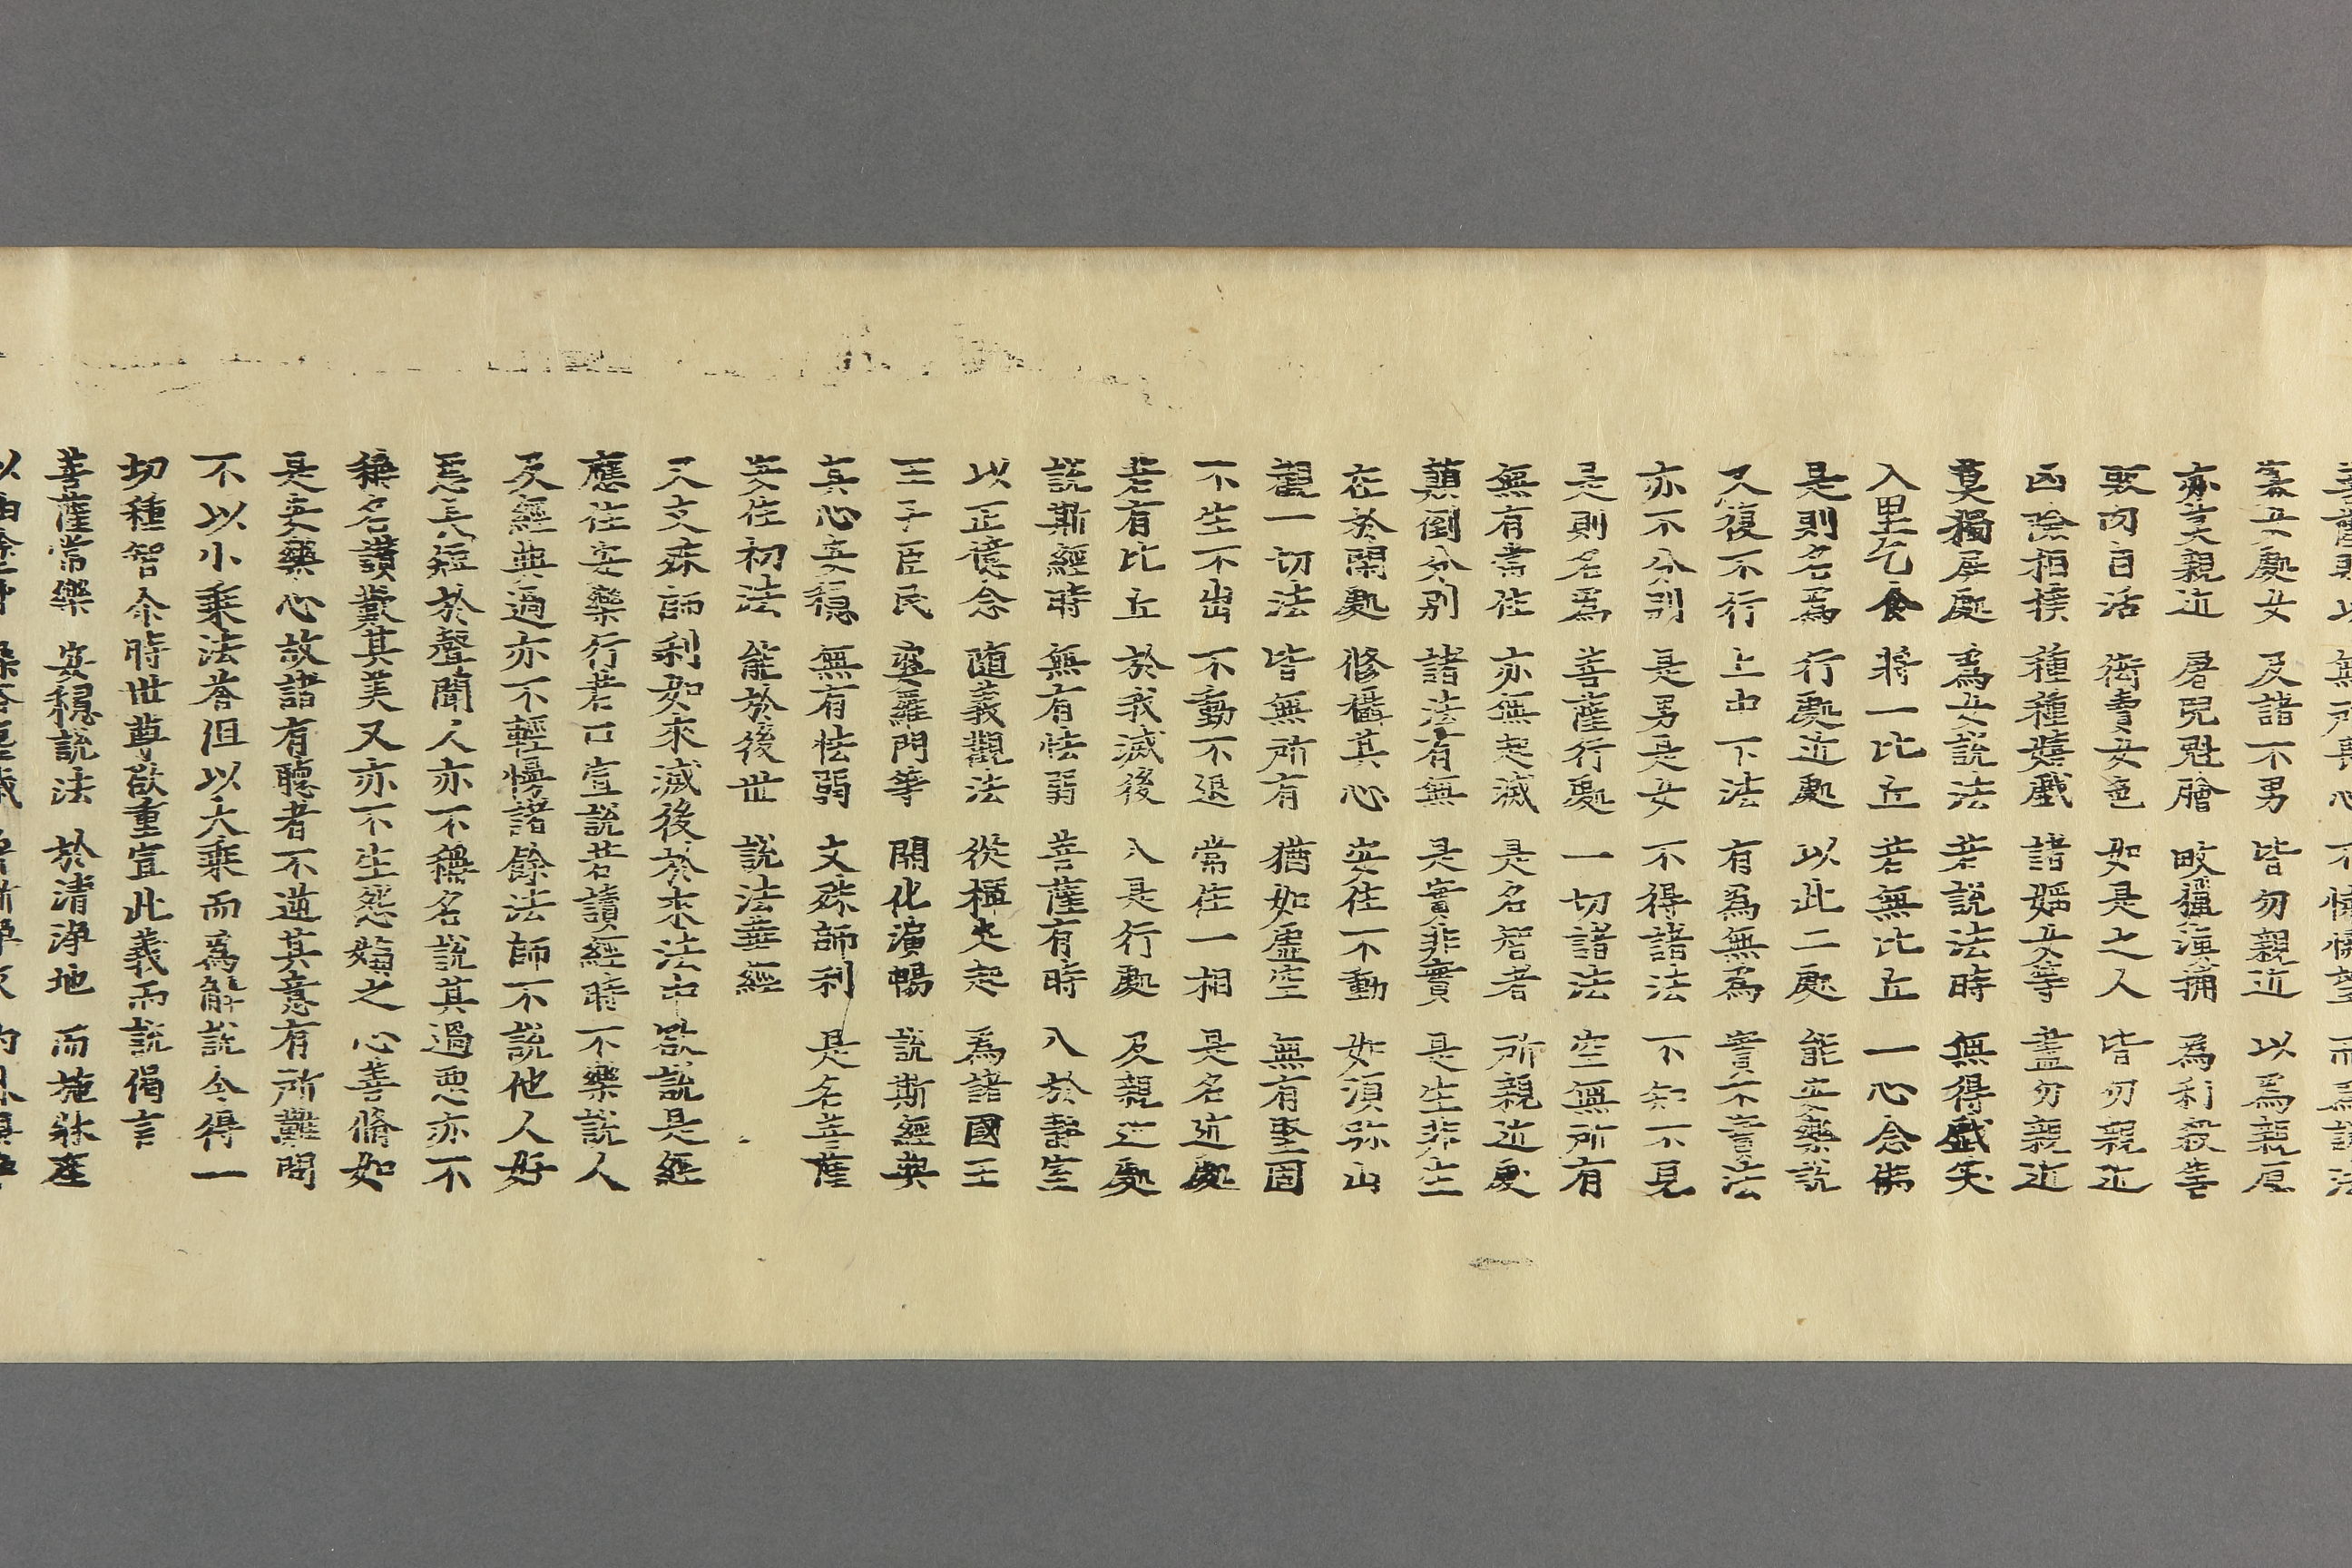 寡女處女 及諸不男 皆勿親近 以為親厚
亦莫親近 屠兒魁膾 畋獵漁捕 為利殺害
販肉自活 衒賣女色 如是之人 皆勿親近
凶險相撲 種種嬉戲 諸婬女等 盡勿親近
莫獨屏處 為女說法 若說法時 無得戲笑
入里乞食 將一比丘 若無比丘 一心念佛
是則名為 行處近處 以此二處 能安樂說
又復不行 上中下法 有為無為 實不實法
亦不分別 是男是女 不得諸法 不知不見
是則名為 菩薩行處 一切諸法 空無所有
無有常住 亦無起滅 是名智者 所親近處
顛倒分別 諸法有無 是實非實 是生非生
在於閑處 修攝其心 安住不動 如須弥山
觀一切法 皆無所有 猶如虛空 無有堅固
不生不出 不動不退 常住一相 是名近處
若有比丘 於我滅後 入是行處 及親近處
說斯經時 無有怯弱 菩薩有時 入於靜室
以正憶念 隨義觀法 從禪定起 為諸國王
王子臣民 婆羅門等 開化演暢 說斯經典
其心安穩 無有怯弱 文殊師利 是名菩薩
安住初法 能於後世 說法華經
又文殊師利如來滅後於末法中欲說是經
應住安樂行若口宣說若讀經時不樂說人
及經典過亦不輕慢諸餘法師不說他人好
惡長短於聲聞人亦不稱名說其過惡亦不
稱名讚歎其美又亦不生怨嫌之心善脩如
是安樂心故諸有聽者不逆其意有所難問
不以小乘法荅但以大乘而為解說令得一
切種智尒時世尊欲重宣此義而說偈言
菩薩常樂 安穩說法 於清淨地 而施牀座